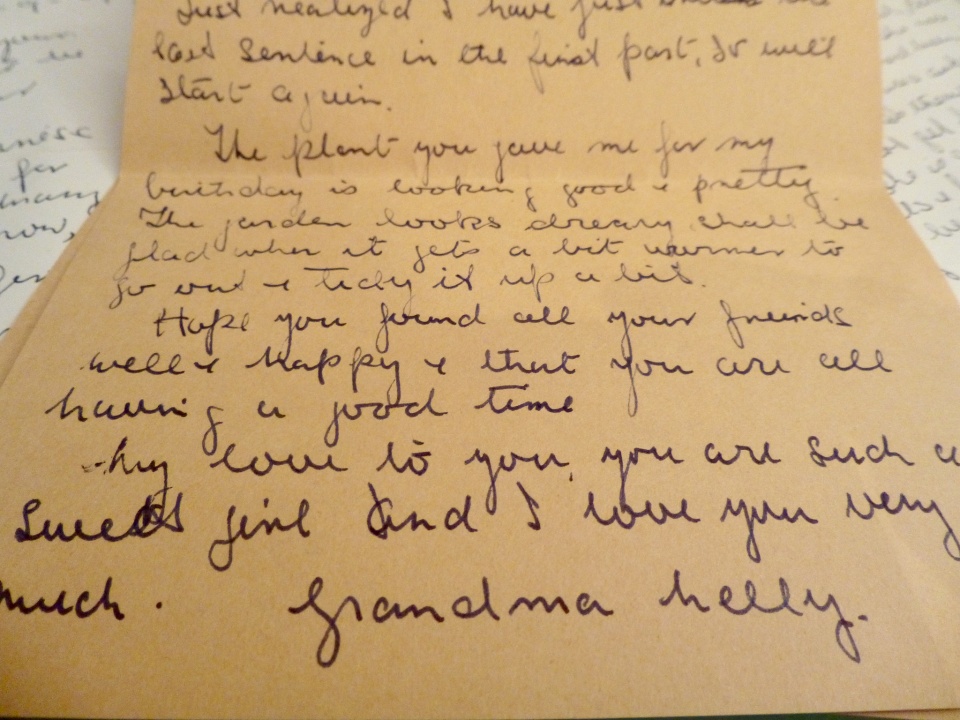 Just realized I have just
last sentence in the first part, so will
start again.
The plant you gave me for my
birthday is looking good & pretty
The garden looks dreary, shall be
glad when it gets a bit warmer to
go out & tidy it up a bit.
Hope you found all your friends
well & happy & that you are all
having a good time
My love to you, you are such a
sweet girl and I love you very
much. Grandma Nelly.